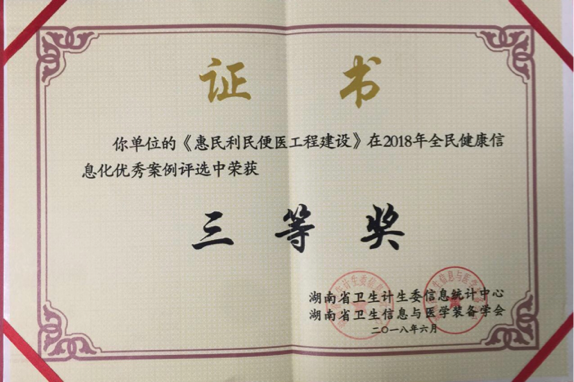 证 书
你单位的《惠民利民便医工程建设》在2018年全民健康信
息化优秀案例评选中荣获
三 等 奖
湖南省卫生计生委信息统计中心
湖南省卫生信息与医学装备学会
二〇一八年六月